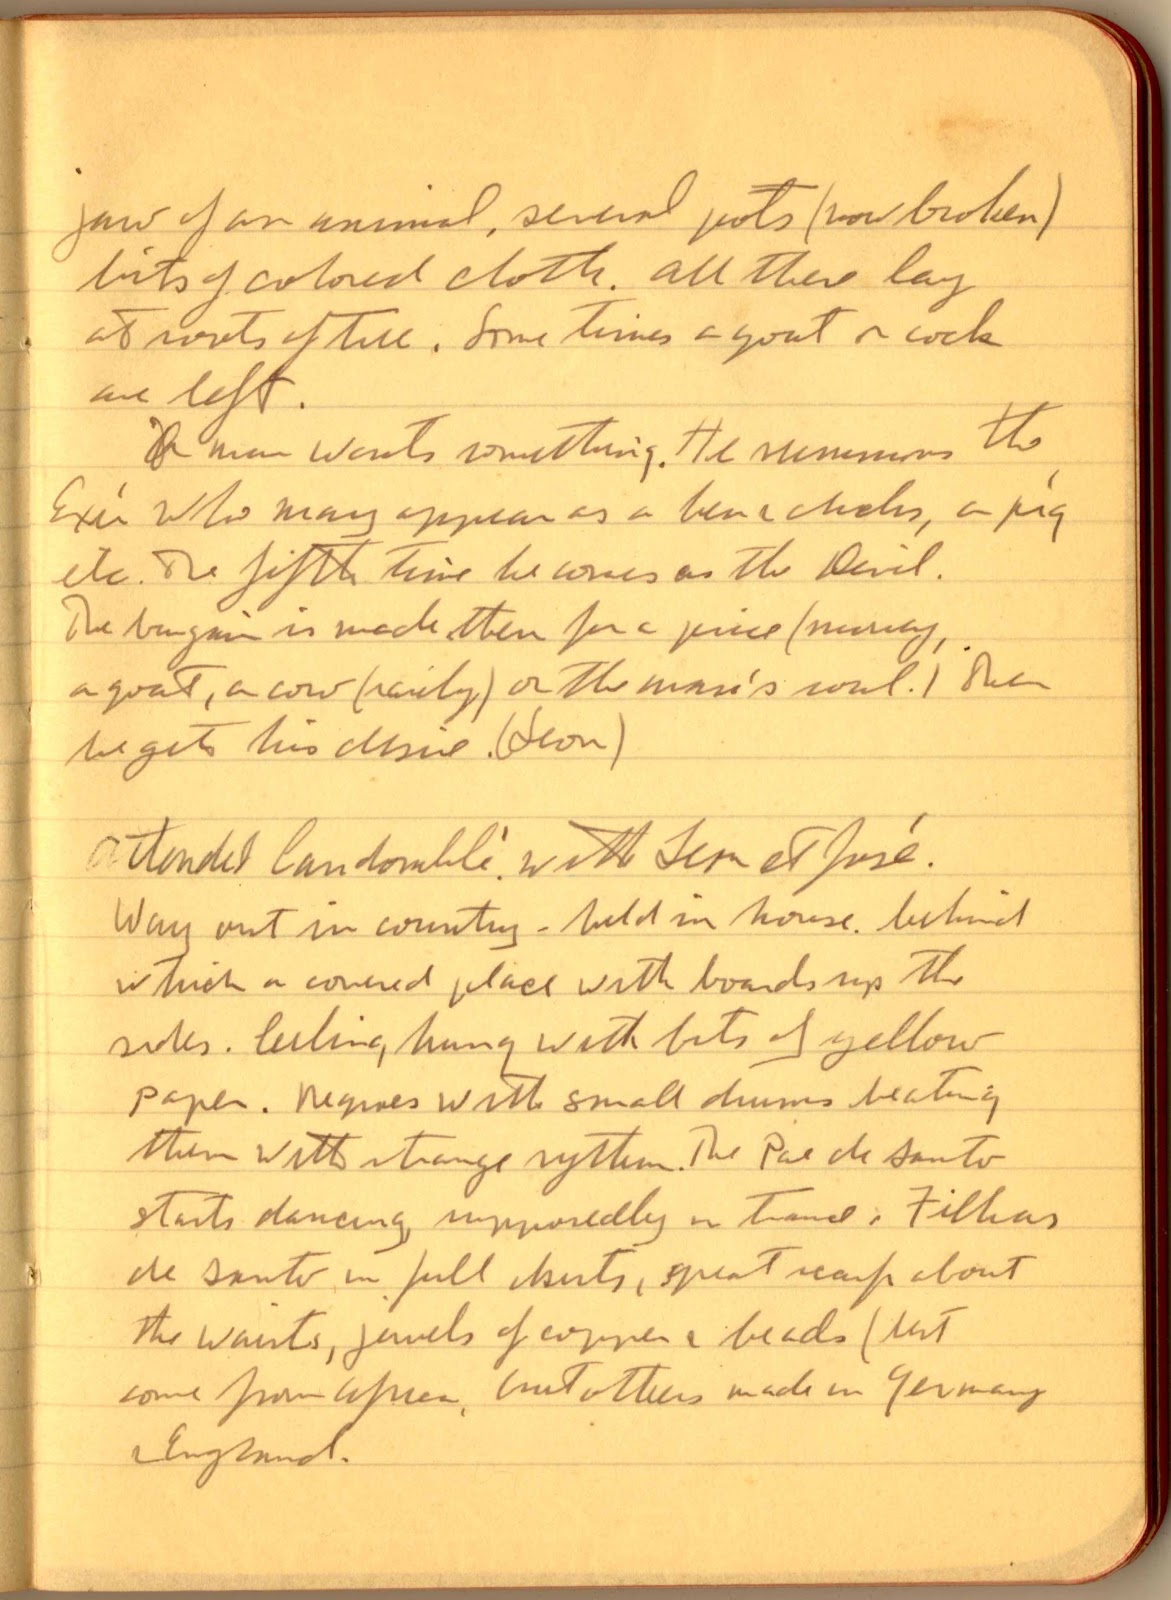 jaw of an animal, several pots (now broken)
bits of colored cloth. All these lay
at roots of tree. Some times a goat or cock
are left.
A man wants something. He summons the
Exú who may appear as a hen & chicks, a pig
etc. The fifth time he comes as the Devil.
The bargain is made then for a price (money,
a goat, a cow (rarily) or the man's soul.) Then
he gets his desire. (Leon)
Attended Candomblé with Leon et José.
Way out in country - held in house. behind
which a covered place with boards up the
sides. Ceiling hung with bits of yellow
paper. Negroes with small drums beating
them with strange rythem. The Pae de santo
starts dancing, supposedly in trance. Filhas
de santo in full skirts, great scarf about
the waists, jewels of copper & beads (best
come from Africa, but others made in Germany
& England.